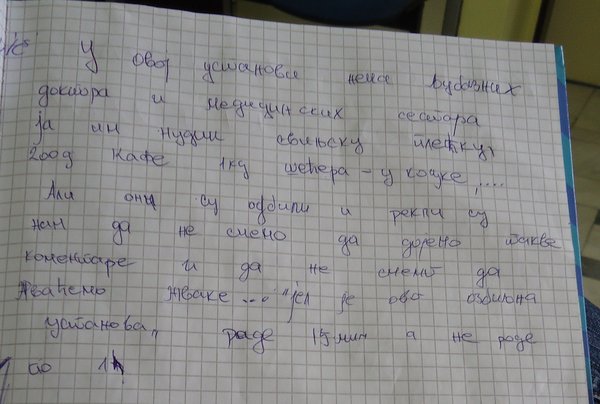 У овој установи нема љубазних
доктора и медицинских сестара
ја им нудим свињску плећку,
200g кафе 1кg шећера - у коцке,....
Али они су одбили и рекли су
нам да не смемо да дајемо такве
коментаре и да не смемо да
жваћемо жваке .... "јел је ово озбиљна
установа" раде 15 мин а не раде
по 1h